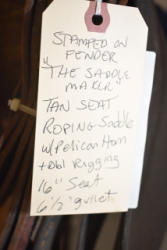 STAMPED ON
FENDER
"THE SADDLE
MAKER
TAN SEAT
ROPING Saddle
w/Pelican Horn
+Dbl Rigging
16" Seat
6½" gullet